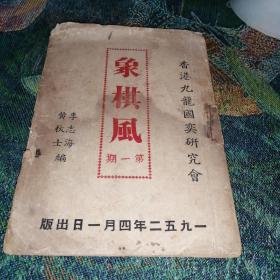 香港九龍國奕硏究會
象棋風
第一期
李志海
黃秋士編
一九五二年四月一日出版